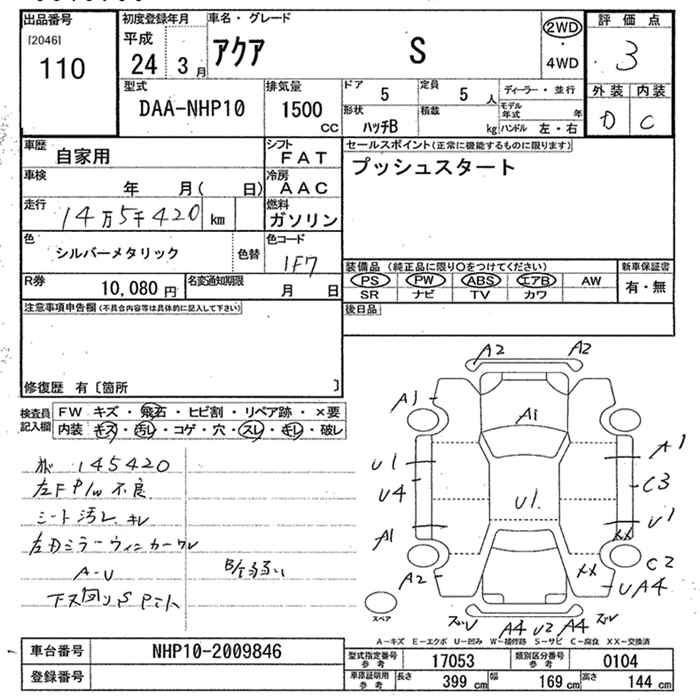 出品番号
[2046]
110
初度登録年月
平成
24 3月
車名・グレード
アクア S
2WD
・
4WD
評価点
3
外装 内装
D C
型式
DAA-NHP10
排気量
1500
CC
ドア 5
定員 5 人
形状 ハッチB
積載 kg
ディーラー・並行
モデル年式 年
ハンドル 左・右
車歴
自家用
シフト
FAT
車検
年 月( 日)
冷房
AAC
走行
14万5千420 km
燃料
ガソリン
色
シルバーメタリック
色替
色コード
1F7
R券
10,080 円
名変通知期限
月 日
セールスポイント(正常に機能するものに限ります)
プッシュスタート
装備品(純正品に限り○をつけてください)
PS PW ABS エアB AW
SR ナビ TV カワ
新車保証書
有・無
後日品
注意事項申告欄(不具合内容等は具体的に記入して下さい)
修復歴 有〔箇所 〕
検査員記入欄
FW キズ・飛石・ヒビ割・リペア跡・×要
内装・キズ・汚レ・コゲ・穴・スレ・キレ・破レ
145420
左F P/W 不良
シート汚レ、キレ
左Dミラーウィンカーワレ
A-U
B/T弱い
下ス回りS
A2 A2
A1 A1
U1 A1
U4 C3
U1 U1
A1 XX
A2 XX C2
UA4
スペア
A4 U2 A4
A-キズ E-エクボ U-凹み W-補修跡 S-サビ C-腐食 XX-交換済
車台番号
NHP10-2009846
登録番号
型式指定番号 参考
17053
類別区分番号 参考
0104
車庫証明用 参考
長さ 399 cm
幅 169 cm
高さ 144 cm